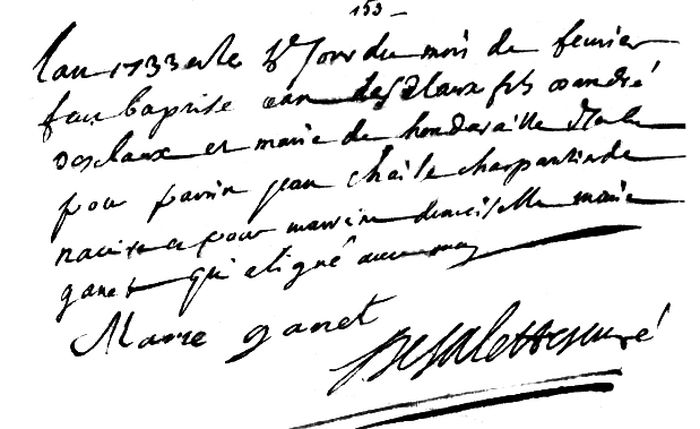 153 –
lan 1733 et le 3e Jour du mois de feurier
feut baptise jean desclaux fils dandré
desclaux et marie de hondaraitte
pour parin jean charle charpantier de
nauire et pour marrine demoiselle marie
ganet qui a signé auec moy
Marie ganet
curé